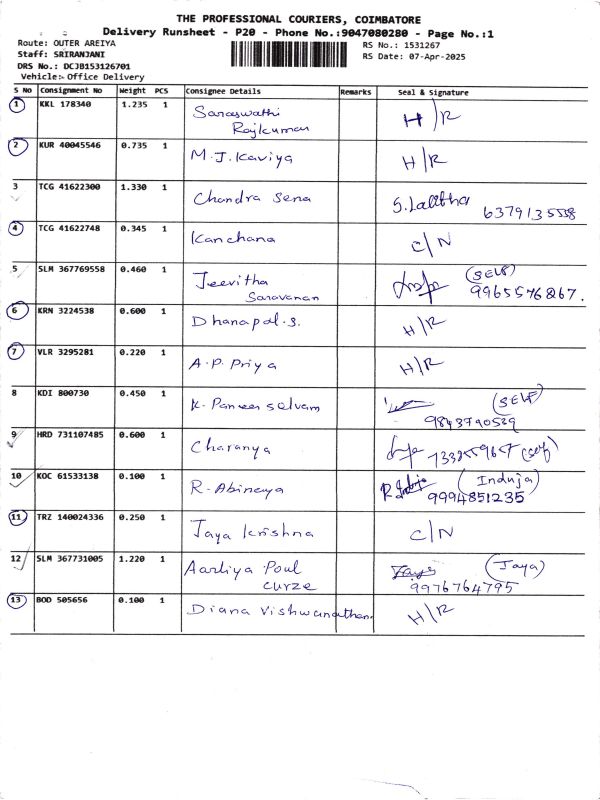 THE PROFESSIONAL COURIERS, COIMBATORE
Delivery Runsheet - P20 - Phone No.:9047080280 - Page No.:1
Route: OUTER AREIYA
Staff: SRIRANJANI
DRS No.: DCJB153126701
Vehicle:- Office Delivery
RS No.: 1531267
RS Date: 07-Apr-2025
S No Consignment No Weight PCS Consignee Details Remarks Seal & Signature
1 KKL 178340 1.235 1 Saraswathi Rajkumar H/R
2 KUR 40045546 0.735 1 M.J.Kaviya H/R
3 TCG 41622300 1.330 1 Chandra Sena S.Lalitha 6379135558
4 TCG 41622748 0.345 1 Kanchana C/N
5 SLM 367769558 0.460 1 Jeevitha Saravanan (SELF) 9965576867.
6 KRN 3224538 0.600 1 Dhanapal.S. H/R
7 VLR 3295281 0.220 1 A.P.Priya H/R
8 KDI 800730 0.450 1 K.Panneerselvam (SELF) 9843790529
9 HRD 731107485 0.600 1 Charanya (Self)
10 KOC 61533138 0.100 1 R.Abinaya (Induja) 9994851235
11 TRZ 140024336 0.250 1 Jaya Krishna C/N
12 SLM 367731005 1.220 1 Aarliya Poul Curze (Jaya) 9976764795
13 BOD 505656 0.100 1 Diana Vishwanathan H/R